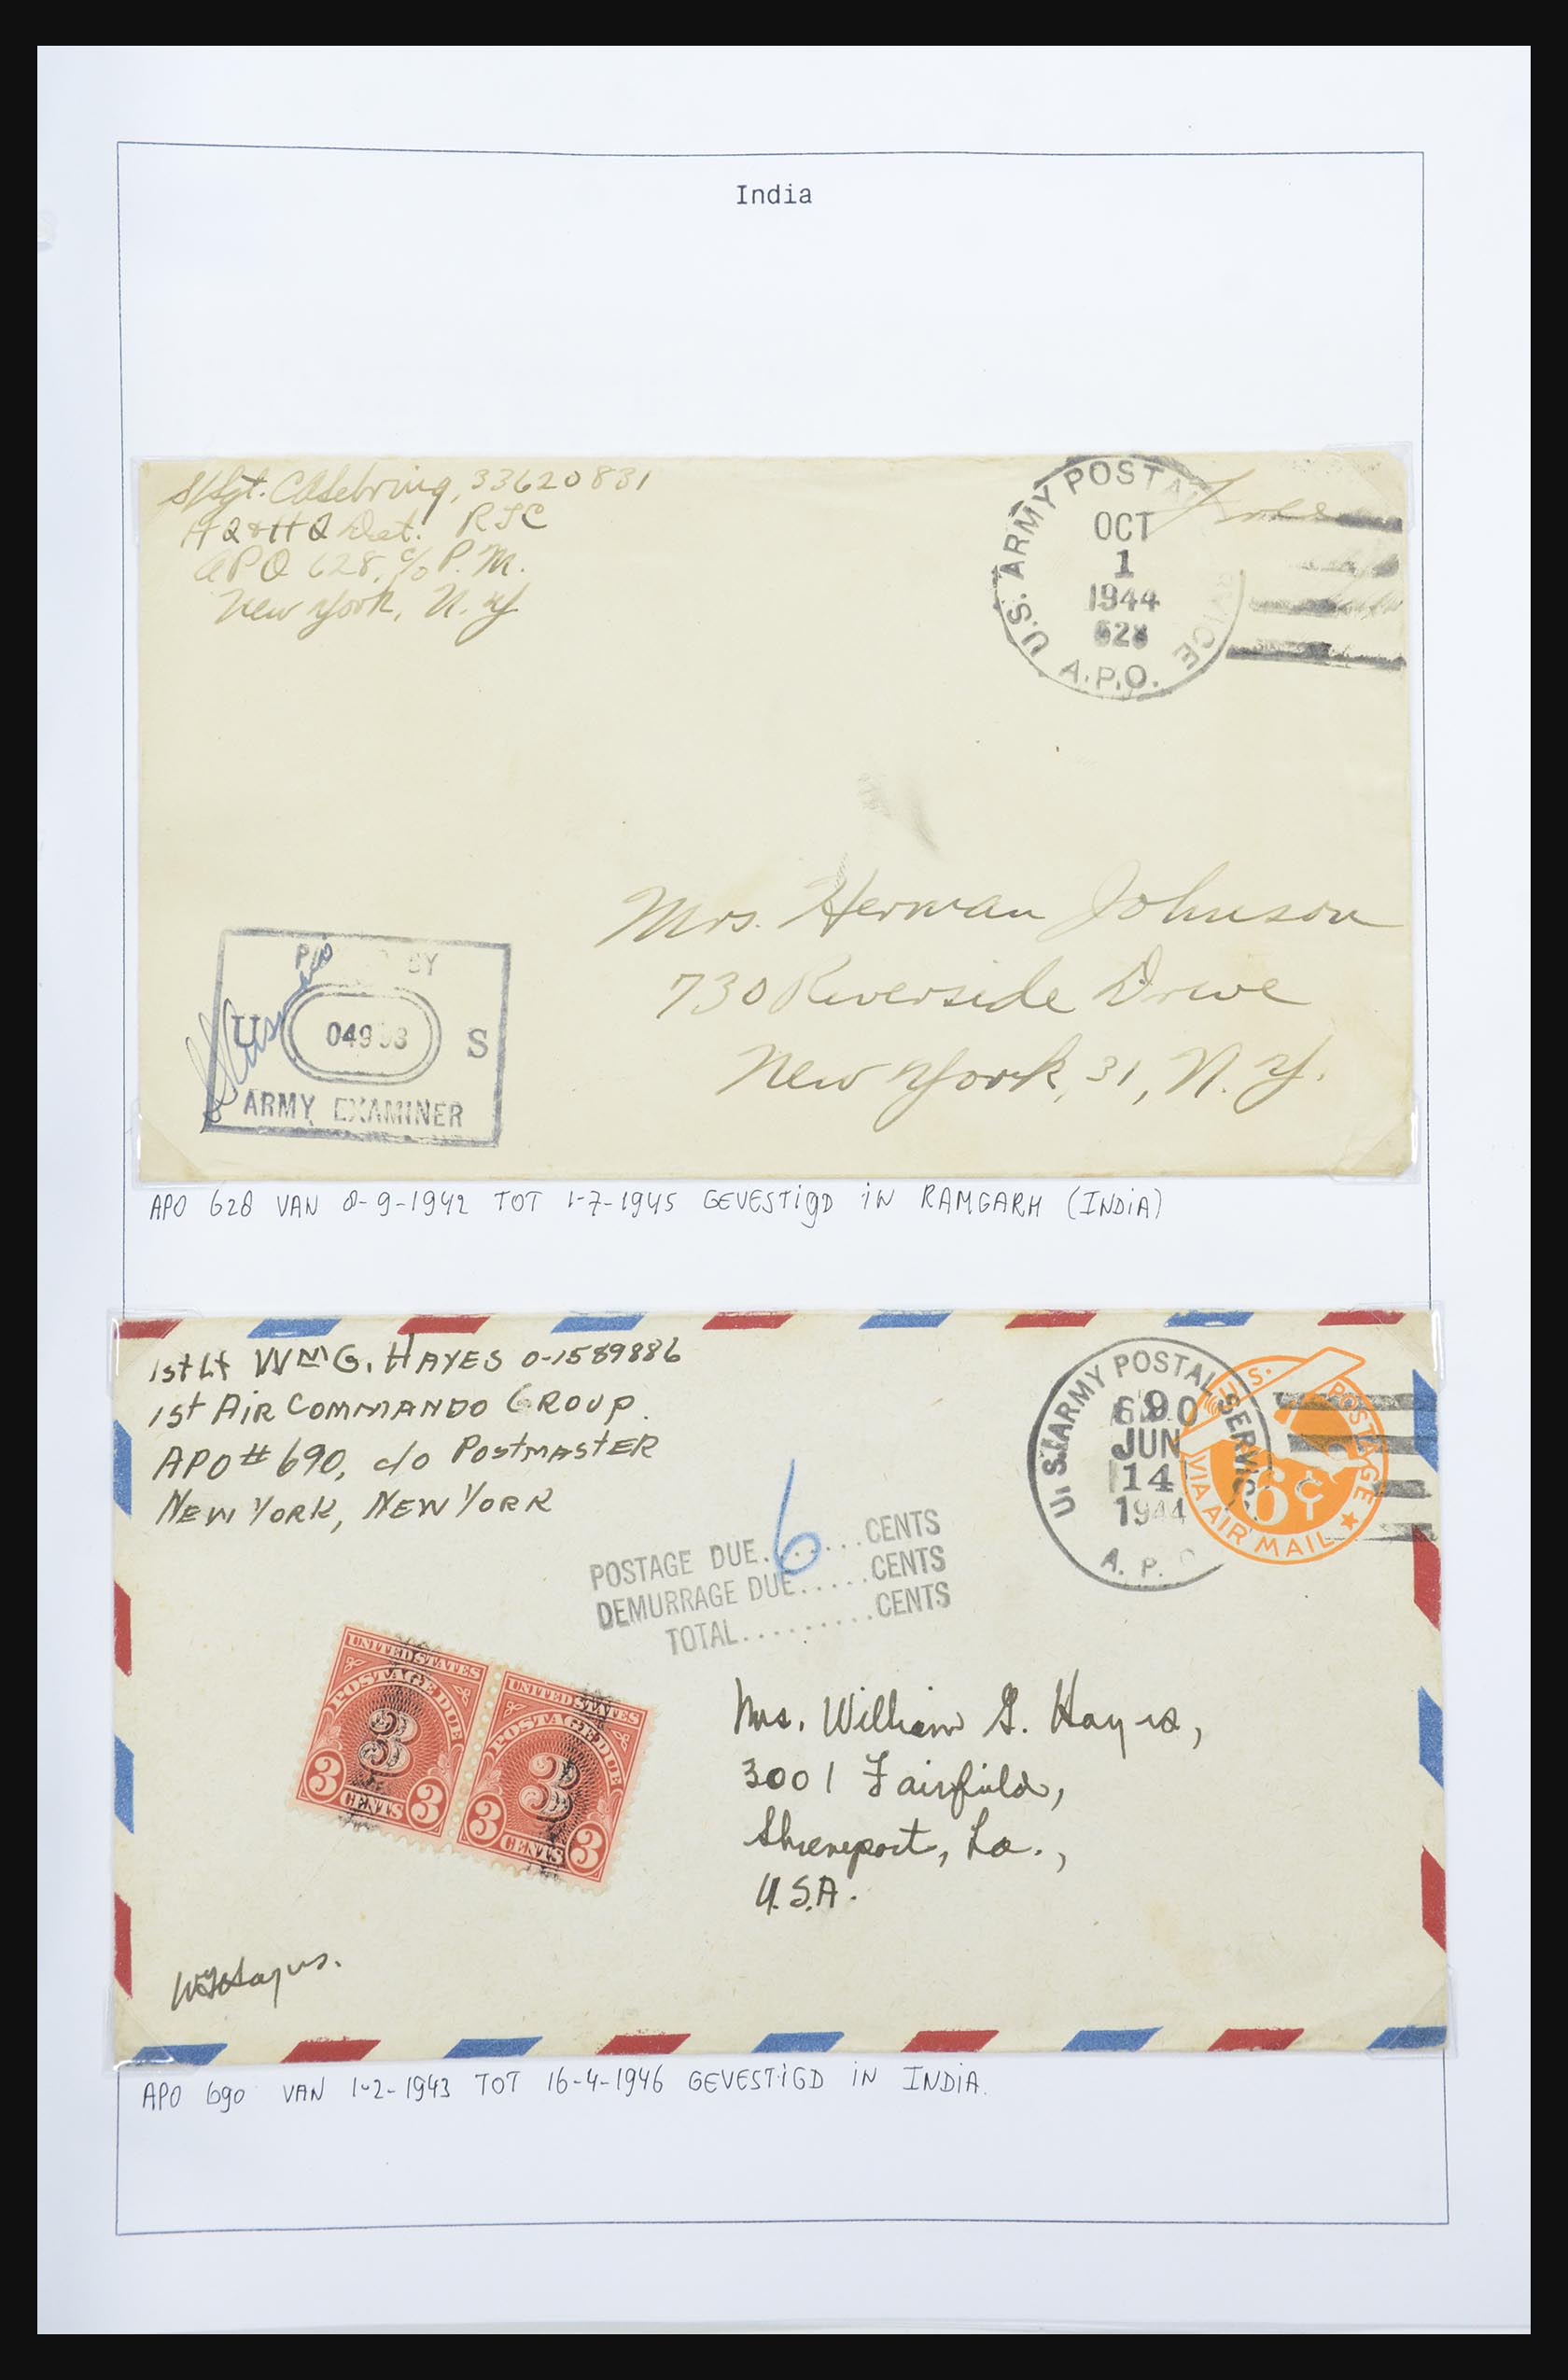 India
S/Sgt. C A Sebring, 33620831
HQ & HQ Det. RTC
APO 628, c/o P.M.
New York, N. Y.
U.S. ARMY POSTAL
OCT
1
1944
628
A.P.O.
Free
Mrs. Herman Johnson
730 Riverside Drive
New York, 31, N. Y.
BY
U S
ARMY EXAMINER
APO 628 VAN 8-9-1942 TOT 1-7-1945 GEVESTIGD IN RAMGARH (INDIA)
1st Lt Wm G. HAYES O-1589886
1st AIR COMMANDO GROUP.
APO # 690, c/o POSTMASTER
NEW YORK, NEW YORK
U.S. ARMY POSTAL SERVICE
690
JUN
14
1944
A. P.
U.S. POSTAGE
6¢
VIA AIR MAIL
6
POSTAGE DUE.......CENTS
DEMURRAGE DUE.....CENTS
TOTAL.........CENTS
UNITED STATES
POSTAGE DUE
3
3 CENTS 3
UNITED STATES
POSTAGE DUE
3
3 CENTS 3
Mrs. William G. Hayes,
3001 Fairfield,
Shreveport, La.,
U.S.A.
WGHayes.
APO 690 VAN 1-2-1943 TOT 16-4-1946 GEVESTIGD IN INDIA.